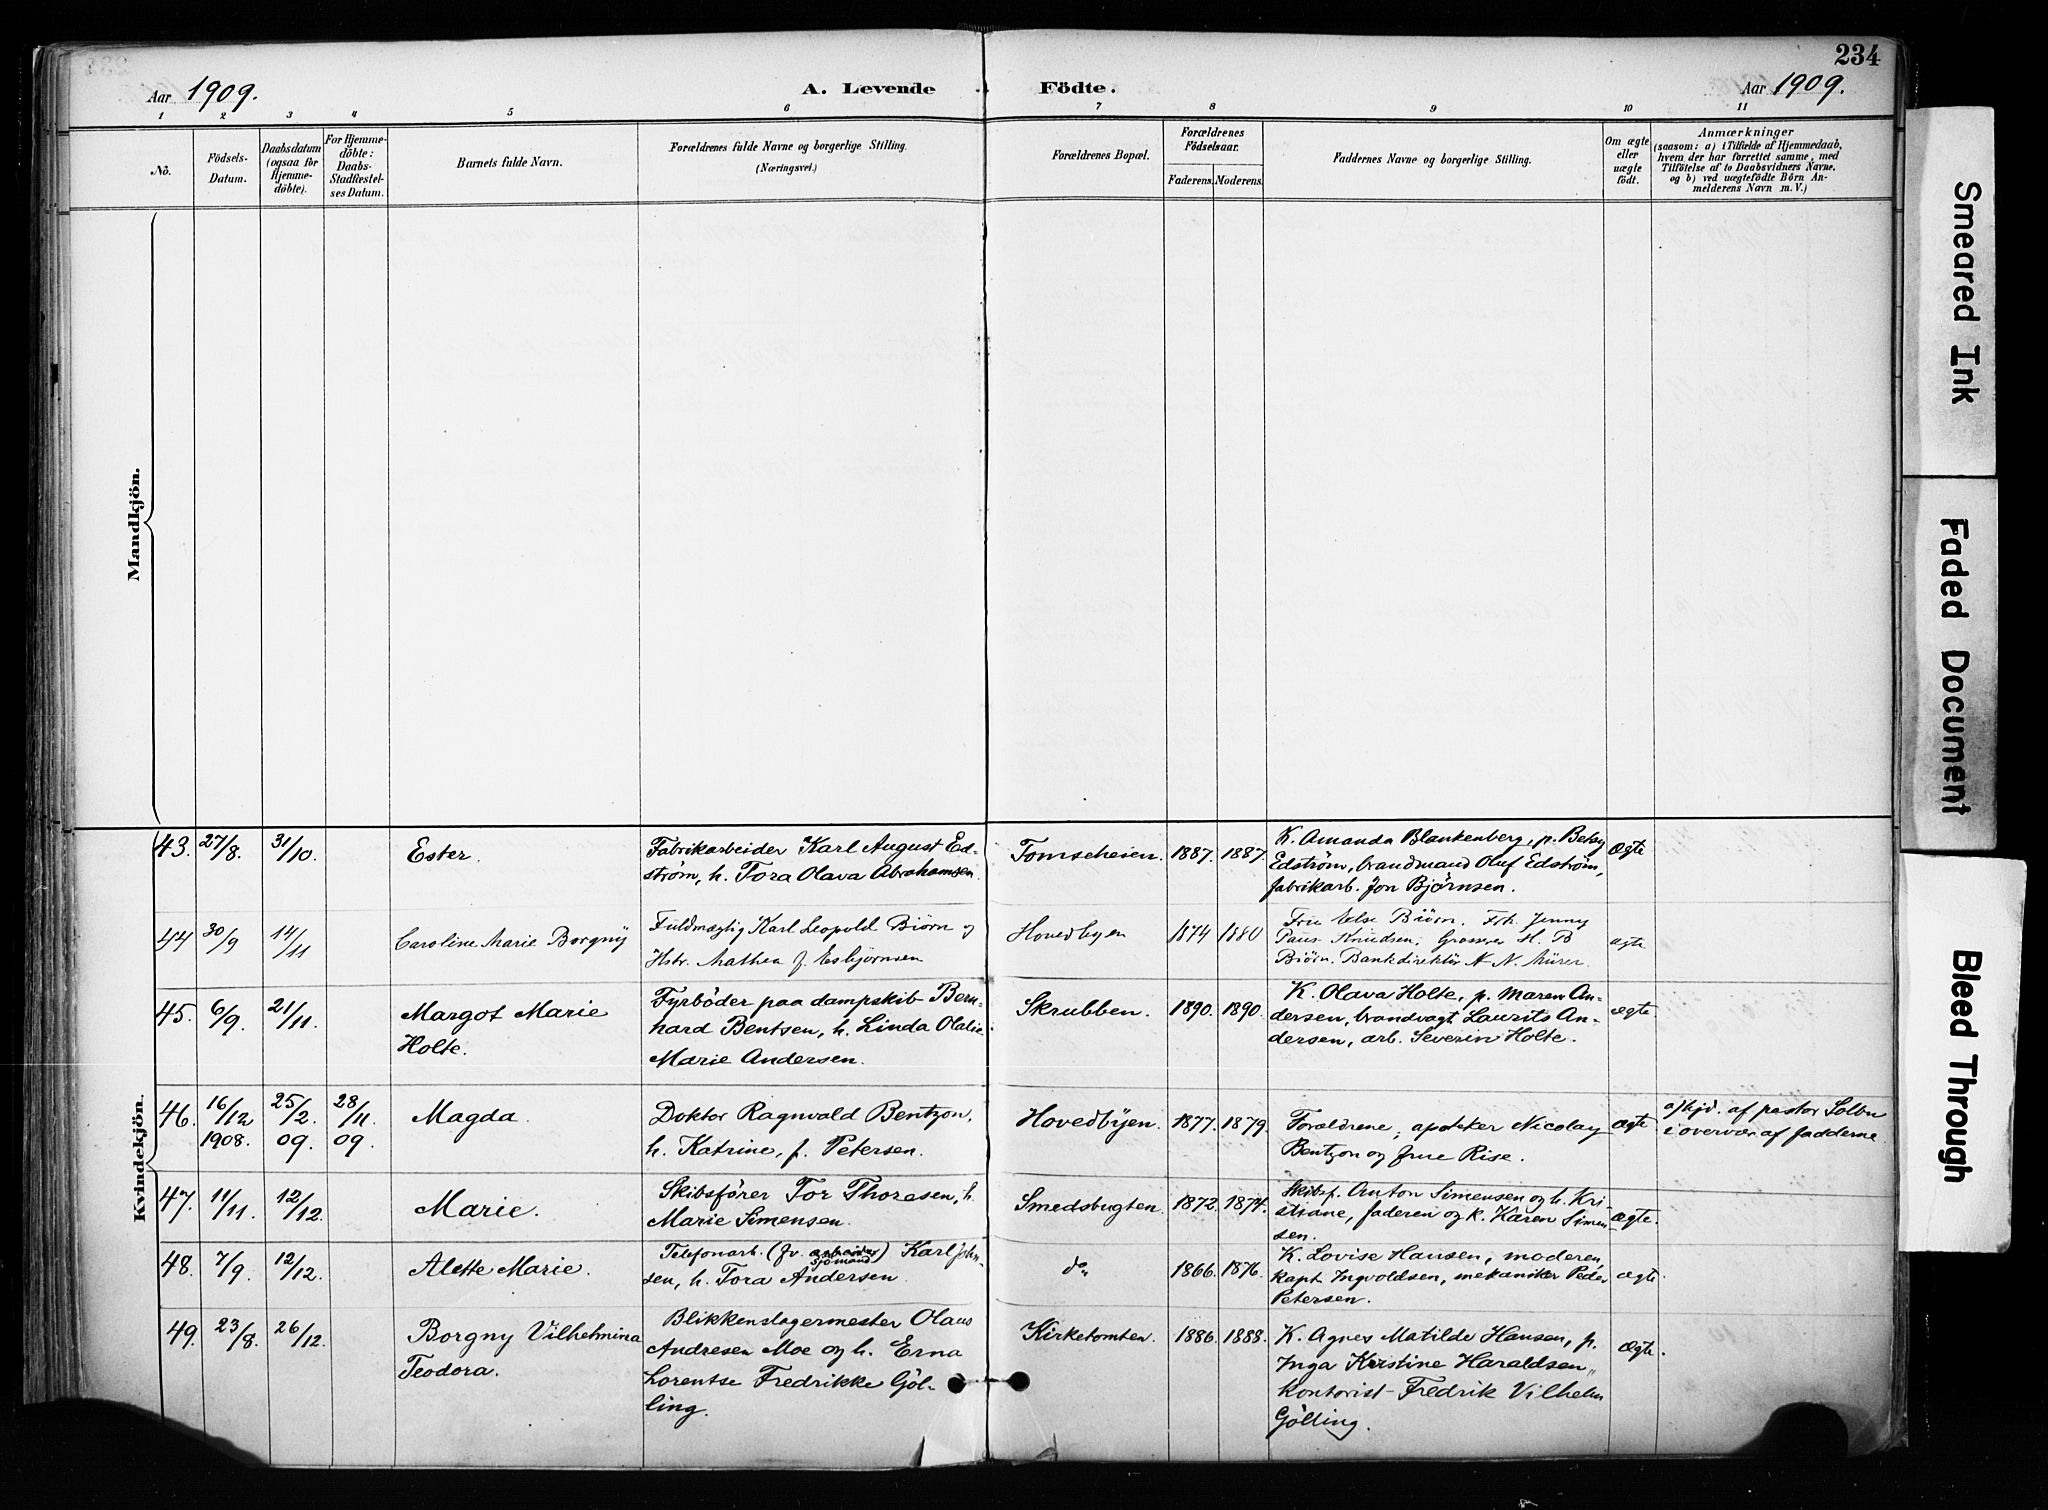 234
Aar 1909. A. Levende Fødte. Aar 1909.
1 2 3 4 5 6 7 8 9 10 11
No.
Fødsels-
Datum.
Daabsdatum
(ogsaa for
Hjemme-
døbte).
For Hjemme-
døbte:
Daabs-
Stadfæstel-
ses Datum.
Barnets fulde Navn.
Forældrenes fulde Navne og borgerlige Stilling.
(Næringsvei.)
Forældrenes Bopæl.
Forældrenes
Fødselsaar.
Faderens. Moderens.
Faddernes Navne og borgerlige Stilling.
Om ægte
eller
uægte
født.
Anmærkninger
(saasom: a) i Tilfælde af Hjemmedaab,
hvem der har forrettet samme, med
Tilføielse af to Daabsvidners Navne.
og b) ved uægtefødte Børn An-
melderens Navn m. V.)
Mandkjön.
Kvindekjön.
43. 27/8. 31/10. Ester.
Fabrikarbeider Karl August Ed-
strøm, h. Tora Olava Abrahamsen.
Tomseheien. 1887. 1887.
K. Amanda Blankenberg, p. Betsy
Edström, brandmand Oluf Edström,
fabrikarb. Jon Bjørnsen.
Ægte
44 30/9 14/11 Caroline Marie Borgny
Fuldmægtig Karl Leopold Biørn og
Hstr. Mathea f. Esbjørnsen
Hovedbyen 1874 1880
Fru Else Biørn. Frk. Jenny
Paus Knudsen, Grosserer H. B
Biørn. Bankdirektör N. N. Mürer.
ægte
45. 6/9. 21/11. Margot Marie
Holte.
Fyrbøder paa dampskib Bern-
hard Bentsen, h. Linda Olalie
Marie Andersen.
Skrubben. 1890. 1890.
K. Olava Holte, p. Maren An-
dersen, brandvagt Laurits An-
dersen, arb. Severin Holte.
ægte.
46. 16/12 1908. 25/2. 09. 28/11. 09. Magda.
Doktor Ragnvald Bentzon,
h. Katrine, f. Petersen.
Hovedbyen. 1877. 1879.
Forældrene, apoteker Nicolay
Bentzon og frue Rise.
ægte
a/hjd. af pastor
i overvær af fadderne
47. 11/11. 12/12. Marie.
Skibsfører Tor Thoresen, h.
Marie Simensen.
Smedsbugten. 1872. 1874.
Skibsf. Anton Simensen og h. Kri-
stiane, faderen og k. Karen Simen-
sen.
ægte.
48. 7/9. 12/12. Alette Marie.
Telefonarb. (fv. arbeider) Karl John-
sjømand
sen, h. Tora Andersen.
do 1866. 1876.
K. Lovise Hansen, moderen,
kapt. Ingvoldsen, mekaniker Peder
Petersen.
ægte.
49. 23/8. 26/12. Borgny Vilhelmina
Teodora.
Blikkenslagermester Olaus
Andresen Moe og h. Erna
Lorentse Fredrikke Göl-
ling.
Kirketomten. 1886. 1888.
K. Agnes Matilde Hansen, p.
Inga Kristine Haraldsen,
kontorist Fredrik Vilhelm
Gölling.
Ægte.
Smeared Ink
Faded Document
Bleed Through